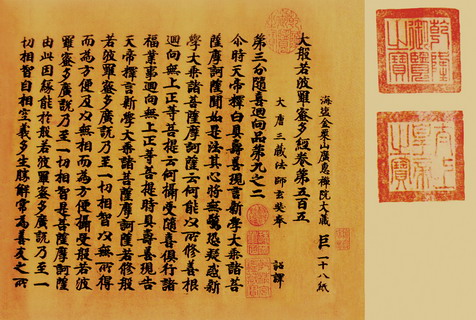 海鹽金粟山廣惠禪院大藏 巨 一十八紙
大般若波羅蜜多經卷第五百五
大唐三藏法師玄奘奉 詔譯
第三分隨喜迴向品第九之二
尒時天帝釋白具壽善現言新學大乘諸菩
薩摩訶薩聞如是法其心將無驚恐疑惑新
學大乘諸菩薩摩訶薩云何以所修善根
迴向無上正等菩提云何攝受隨喜俱行諸
福業事迴向無上正等菩提時具壽善現告
天帝釋言新學大乘諸菩薩摩訶薩若修般
若波羅蜜多廣說乃至一切相智以無所得
而為方便及以無相而為方便攝受般若波
羅蜜多廣說乃至一切相智是菩薩摩訶薩
由此因緣能於般若波羅蜜多廣說乃至一
切相智自相空義多生勝解常為善友之所
乾隆御覽之寶
太上皇帝之寶